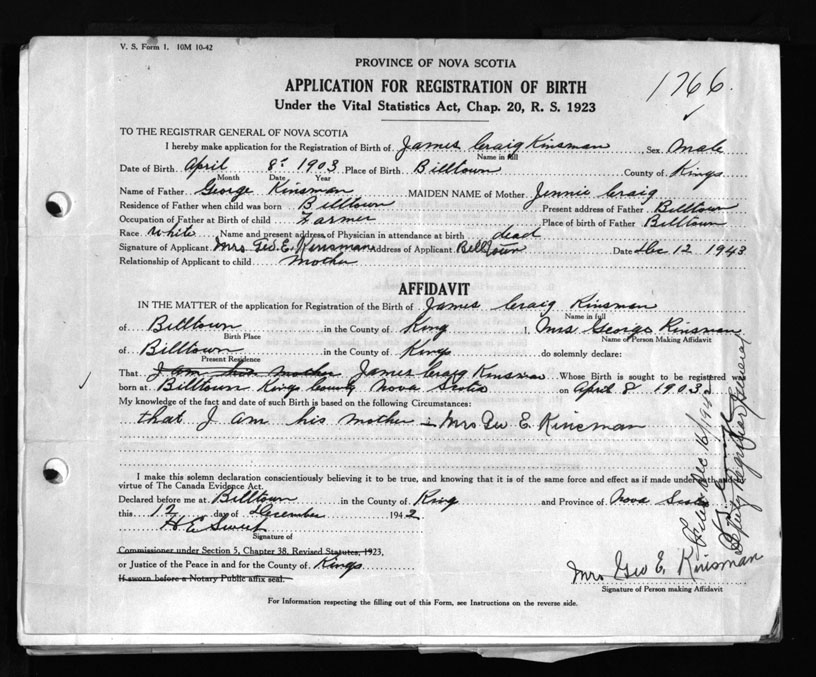 V. S. Form 1. 10M 10-42
PROVINCE OF NOVA SCOTIA
1766.
APPLICATION FOR REGISTRATION OF BIRTH
Under the Vital Statistics Act, Chap. 20, R. S. 1923
TO THE REGISTRAR GENERAL OF NOVA SCOTIA
I hereby make application for the Registration of Birth of James Craig Kinsman Sex Male
Name in full
Date of Birth April 8: 1903 Place of Birth Billtown County of Kings
Month Date Year
Name of Father George Kinsman MAIDEN NAME of Mother Jennie Craig
Residence of Father when child was born Billtown Present address of Father Billtown
Occupation of Father at Birth of child Farmer Place of birth of Father Billtown
Race white Name and present address of Physician in attendance at birth dead
Signature of Applicant Mrs Geo. E. Kinsman Address of Applicant Billtown Date Dec 12 1943
Relationship of Applicant to child mother
AFFIDAVIT
IN THE MATTER of the application for Registration of the Birth of James Craig Kinsman
Name in full
of Billtown in the County of King I, Mrs George Kinsman
Birth Place Name of Person Making Affidavit
of Billtown in the County of Kings do solemnly declare:
Present Residence
That I am his mother James Craig Kinsman Whose Birth is sought to be registered was
born at Billtown Kings County Nova Scotia on April 8 1903
My knowledge of the fact and date of such Birth is based on the following Circumstances:
that I am his mother Mrs Geo E. Kinsman
I make this solemn declaration conscientiously believing it to be true, and knowing that it is of the same force and effect as if made under oath
virtue of The Canada Evidence Act.
Declared before me at Billtown in the County of King and Province of Nova Scotia
this 12 day of December 1942
H E Sweet
Signature of
Commissioner under Section 5, Chapter 38, Revised Statutes, 1923,
or Justice of the Peace in and for the County of Kings
If sworn before a Notary Public affix seal.
Mrs Geo E. Kinsman
Signature of Person making Affidavit
For Information respecting the filling out of this Form, see Instructions on the reverse side.
Dec 16/1942
Deputy Registrar General